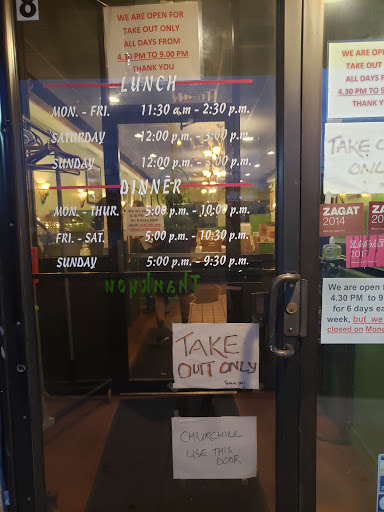 8
WE ARE OPEN FOR
TAKE OUT ONLY
ALL DAYS FROM
4.30 PM TO 9.00 PM
THANK YOU
LUNCH
MON. - FRI. 11:30 a.m - 2:30 p.m.
SATURDAY 12:00 p.m. - 3:00 p.m.
SUNDAY 12:00 p.m. - 3:00 p.m.
DINNER
MON. - THUR. 5:00 p.m. - 10:00 p.m.
FRI. - SAT. 5:00 p.m. - 10:30 p.m.
SUNDAY 5:00 p.m. - 9:30 p.m.
Thankyou
TAKE
OUTT ONLY
Thank you
CHURCHILL
USE THIS
DOOR
WE ARE OPEN
TAKE OUT
ALL DAYS
4.30 PM TO 9
THANK
TAKE O
ONL
ZAGAT
2014
ZAGA
201
2017
We are open f
4.30 PM to 9
for 6 days ea
week, but we
closed on Mond